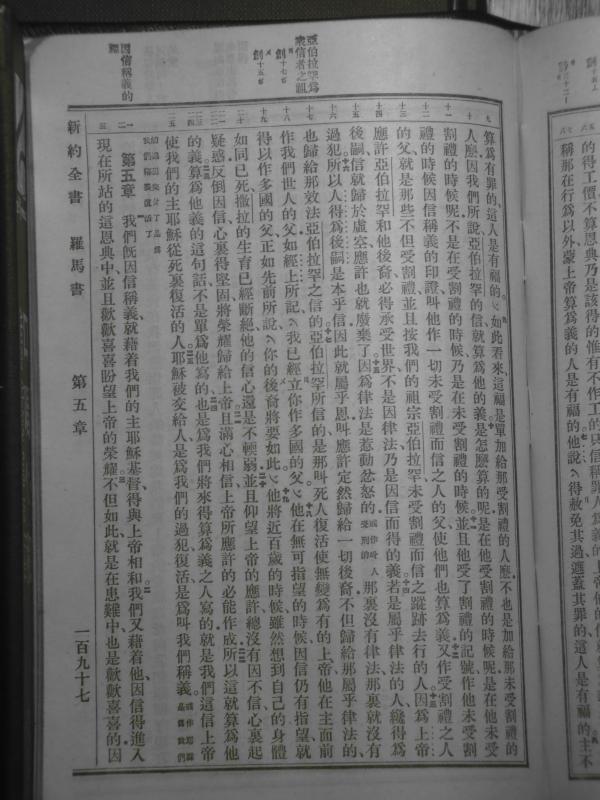 的得工價不算恩典乃是該得的惟有不作工的只信
稱那在行爲以外蒙上帝算爲義的人是有福的他說得赦免其過遮蓋其罪的這人是有福的主不
算爲有罪的這人是有福的如此看來這福是單加給那受割禮的人麽不也是加給那未受割禮的
人麽因我們所說亞伯拉罕的信就算爲他的義是怎麽算的呢是在他受割禮的時候呢是在他未受
割禮的時候呢不是在受割禮的時候乃是在未受割禮的時候並且他受了割禮的記號作他未受割
禮的時候因信稱義的印證叫他作一切未受割禮而信之人的父使他們也算爲義又作受割禮之人
的父就是那些不但受割禮並且按我們的祖宗亞伯拉罕未受割禮而信之蹤跡去行的人因爲上帝
應許亞伯拉罕和他後裔必得承受世界不是因律法乃是因信而得的義若是屬乎律法的人纔得爲
後嗣信就歸於虛空應許也就廢棄了因爲律法是惹動忿怒的或作叫人受刑的那裏沒有律法那裏就沒有
過犯所以人得爲後嗣是本乎信因此就屬乎恩叫應許定然歸給一切後裔不但歸給那屬乎律法的
也歸給那效法亞伯拉罕之信的亞伯拉罕所信的是那叫死人復活使無變爲有的上帝他在主面前
作我們世人的父如經上所記我已經立你作多國的父他在無可指望的時候因信仍有指望就
得以作多國的父正如先前所說你的後裔將要如此他將近百歲的時候雖然想到自己的身體
如同已死撒拉的生育已經斷絕他的信心還是不輭弱並且仰望上帝的應許總沒有因不信心裏起
疑惑反倒因信心裏得堅固將榮耀歸給上帝且滿心相信上帝所應許的必能作成所以這就算爲他
的義算爲他義的這句話不是單爲他寫的也是爲我們將來得算爲義之人寫的就是我們這信上帝
使我們的主耶穌從死裏復活的人耶穌被交給人是爲我們的過犯復活是爲叫我們稱義或作耶穌是爲我們
的過犯交付了是爲我們稱義復活了
第五章 我們旣因信稱義就藉着我們的主耶穌基督得與上帝相和我們又藉着他因信得進入
現在所站的這恩典中並且歡歡喜喜盼望上帝的榮耀不但如此就是在患難中也是歡歡喜喜的因
亞伯拉罕爲
衆信者之祖
創十七章
創十五章
因信稱義的
新約全書 羅馬書 第五章 一百九十七